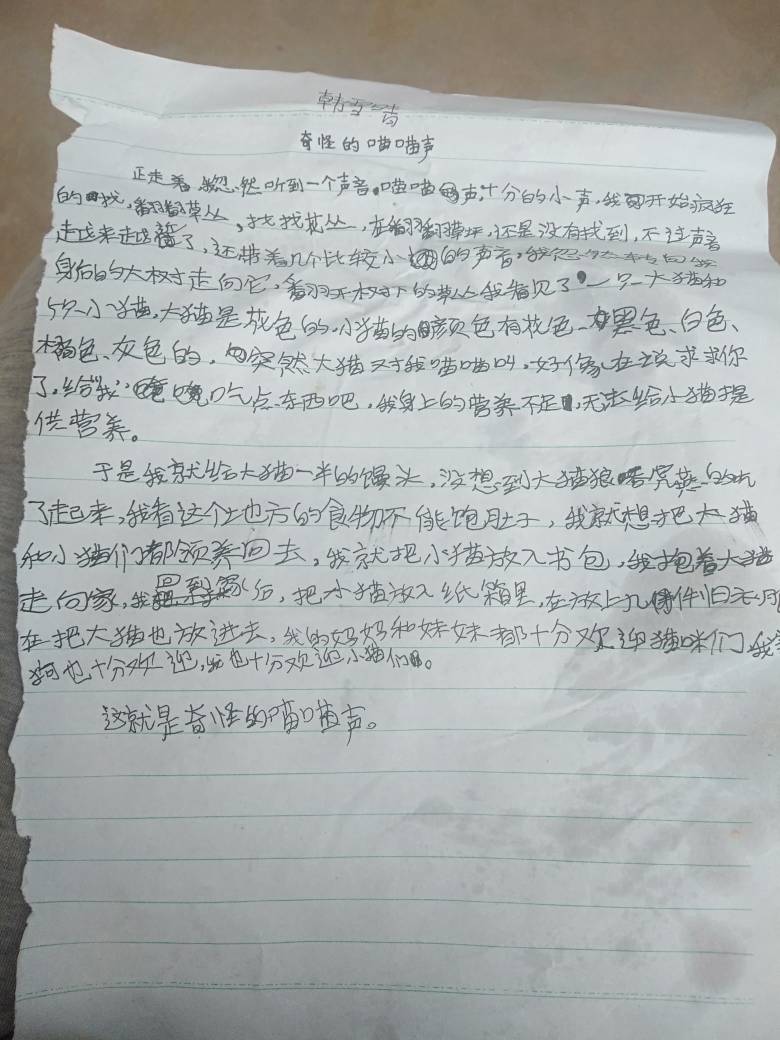 奇怪的喵喵声
正走着,我忽然听到一个声音,喵喵声,十分的小声,我开始疯狂
的找,翻翻草丛,找找花丛,在翻翻草坪,还是没有找到,不过声音
越来越了,还带着几个比较小的声音,我
身后的大树走向它,翻开树下的草丛我看见了,一只大猫和
5只小猫,大猫是花色的,小猫的颜色有花色、黑色、白色、
橘色、灰色的,突然大猫对我喵喵叫,好像在说求求你
了,给“我”吃点东西吧,我身上的营养不足,无法给小猫提
供营养。
于是我就给大猫一半的馒头,没想到大猫狼吞虎燕的吃
了起来,我看这个地方的食物不能饱肚子,我就想把大猫
和小猫们都领养回去,我就把小猫放入书包,我抱着大猫
走向家,我回到家后,把小猫放入纸箱里,在放上几件旧衣服
在把大猫也放进去,我的妈妈和妹妹都十分欢迎猫咪们,我
狗也十分欢迎,我也十分欢迎小猫们。
这就是奇怪的喵喵声。